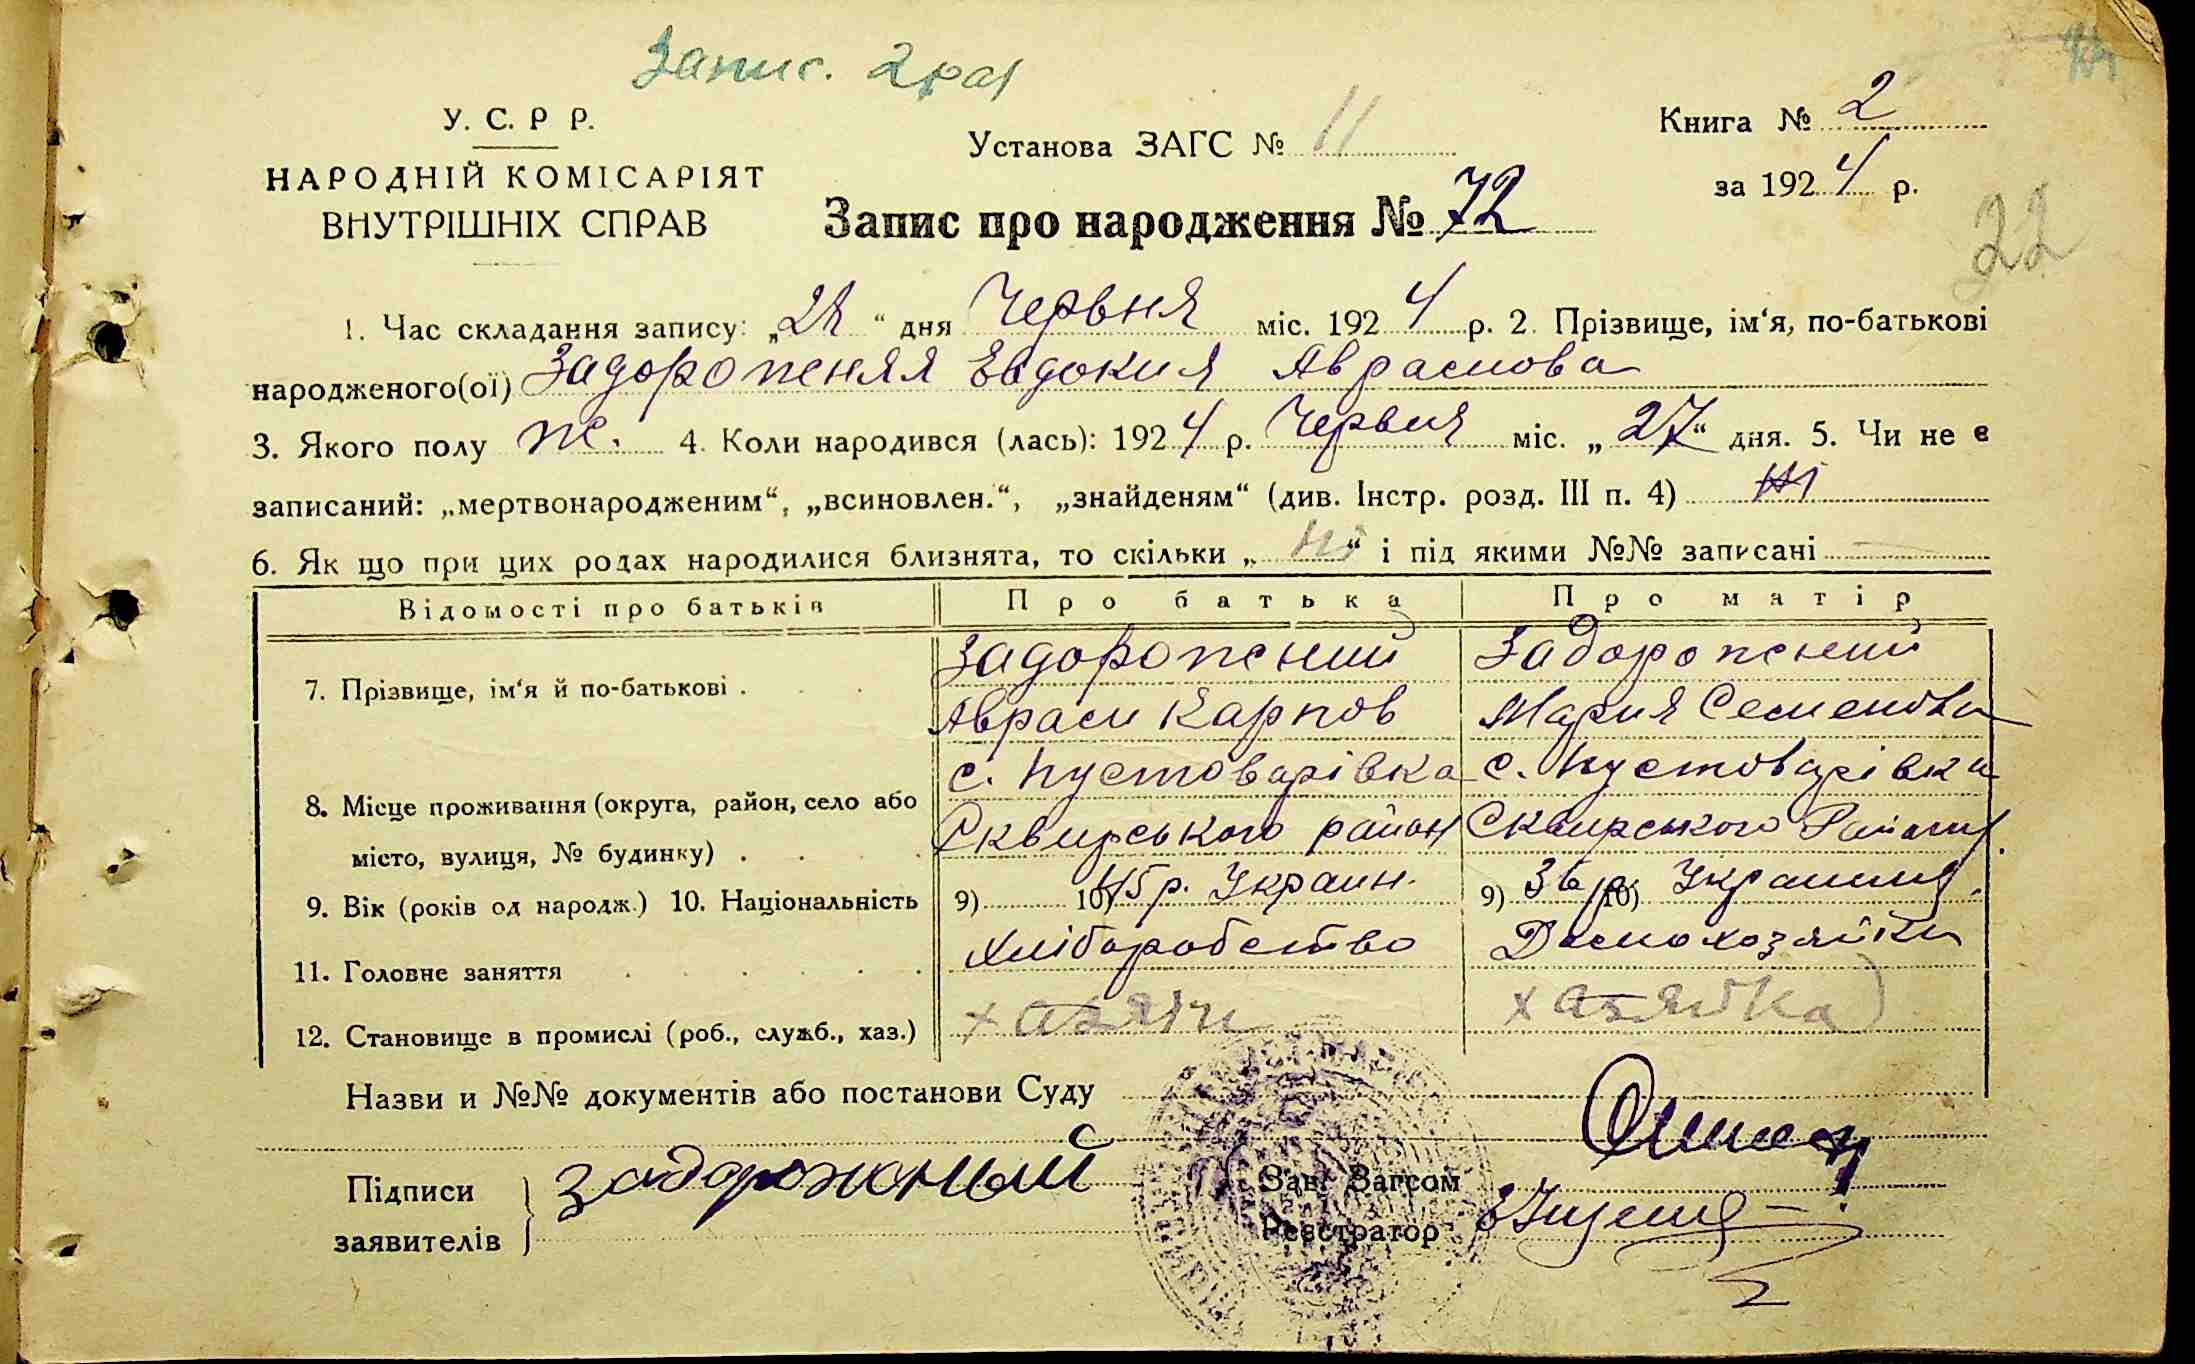 Запис. 2 раз
У. С. Р Р.
НАРОДНІЙ КОМІСАРІЯТ
ВНУТРІШНІХ СПРАВ
Установа ЗАГС № 11
Книга № 2
за 1924 р.
Запис про народження № 72
22
1. Час складання запису: „28“ дня Червня міс. 1924 р. 2. Прізвище, ім‘я, по-батькові
народженого(ої) Задорожняя Евдокия Аврамова
3. Якого полу ж. 4. Коли народився (лась): 1924 р. Червня міс. „27“ дня. 5. Чи не є
записаний: „мертвонародженим“, „всиновлен.“, „знайденям“ (див. Інстр. розд. III п. 4) Ні
6. Як що при цих родах народилися близнята, то скільки „ні“ і під якими №№ записані —
Відомості про батьків Про батька Про матір
7. Прізвище, ім‘я й по-батькові . Задорожний Задорожний
Аврам Карпов Мария Семенова
с. Пустоварівка с. Пустоварівка
8. Місце проживання (округа, район, село або
місто, вулиця, № будинку) . Сквирського район Сквирського Району
9. Вік (років од народж.) 10. Національність 9) 10) 45 р. Украин. 9) 36 р. 10) Украинця.
11. Головне заняття Хліборобство Домохозяйка
12. Становище в промислі (роб., служб., хаз.) хазяін хазяйка
Назви и №№ документів або постанови Суду
Підписи
заявителів
Задорожный
Зав. Загсом
Реєстратор